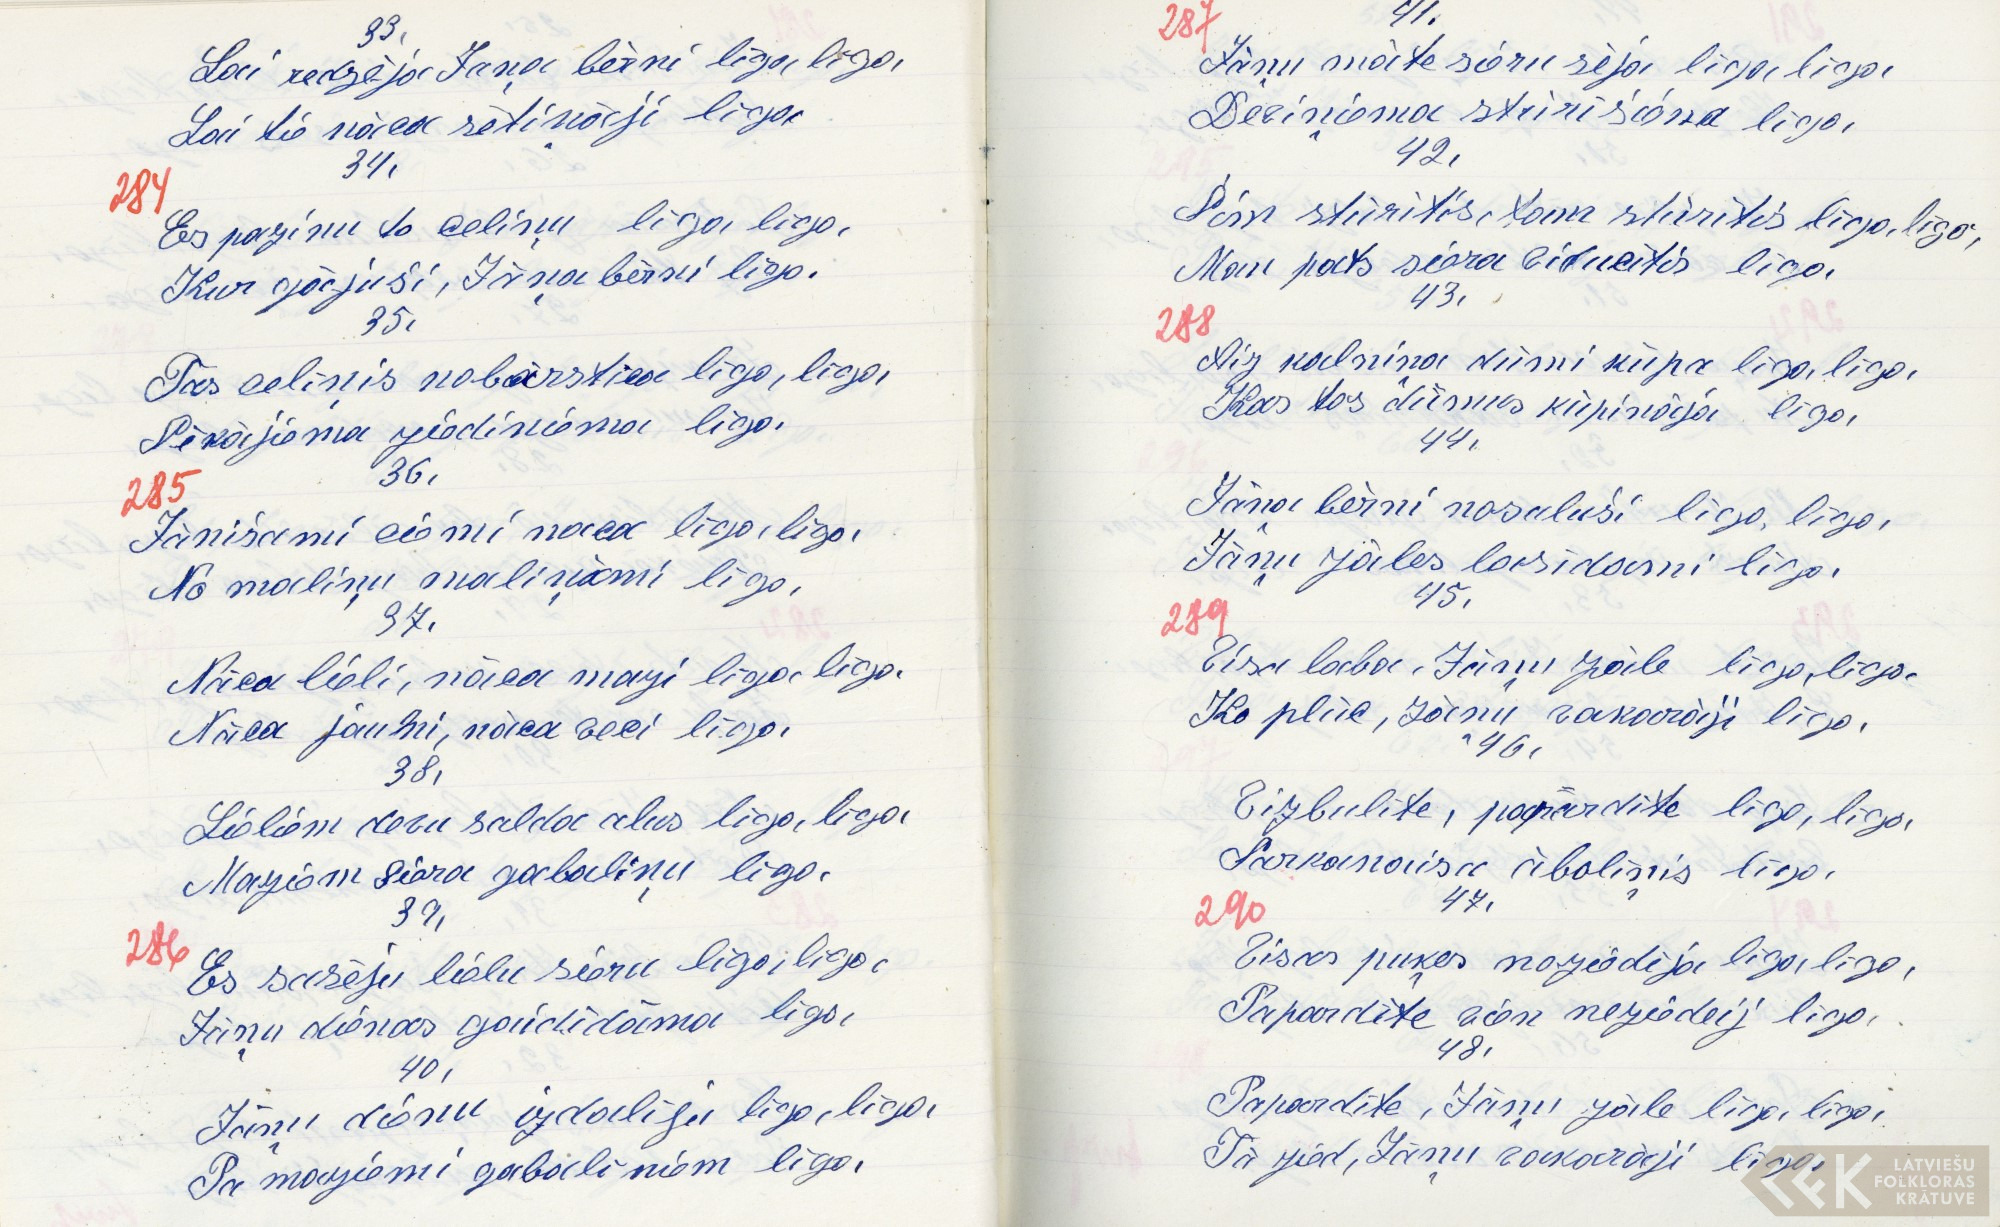 33,
Lai redzēja Jāņa bērni līgo, līgo,
Lai tó nāca sētiņāji līgo,
34,
284
Es pazinu to celiņu līgo, līgo,
Kur gājuši, Jāņa bērni līgo.
35,
Tas celiņis nobārstica līgo, līgo,
Pēkājóma ziédinióma līgo.
36,
285
Jānišami ciómi nāca līgo, līgo,
No maliņu maliņāmi līgo,
37,
Nāca liéli, nāca mazi līgo līgo.
Nāca jauni, nāca veci līgo,
38,
Liéliém devu salda alus līgo, līgo,
Maziém siéra gabaliņu līgo,
39,
286
Es sasēju liélu siéru līgo, līgo,
Jāņu diénas gaididāma līgo,
40,
Jāņu diénu izdaliju līgo, līgo,
Pa maziémi gabaliniém līgo,
41,
287
Jāņu māte siéru sēja līgo, līgo,
Deviņióma stūrišióma līgo,
42,
Šim stūritis, tam stūritis līgo, līgo,
Man pats siéra viducitis līgo,
43,
288
Aiz kalniņa dūmi kūpa līgo, līgo,
Kas tos dūmus kūpināja līgo,
44,
Jāņa bērni nosaluši līgo, līgo,
Jāņu zāles lasidami līgo,
45,
289
Visa laba, Jāņu zāle līgo, līgo,
Ko plūc, Jāņu vakarāji līgo,
46,
Vizbulite, papardite līgo, līgo,
Sarkanaisa āboliņis līgo,
47,
290
Visas puķes noziédija līgo, līgo,
Papardite vién neziédeij līgo,
48,
Papardite, Jāņu zāle līgo, līgo,
Tā ziéd, Jāņu vakarāji līgo,
LATVIEŠU
FOLKLORAS
KRĀTUVE